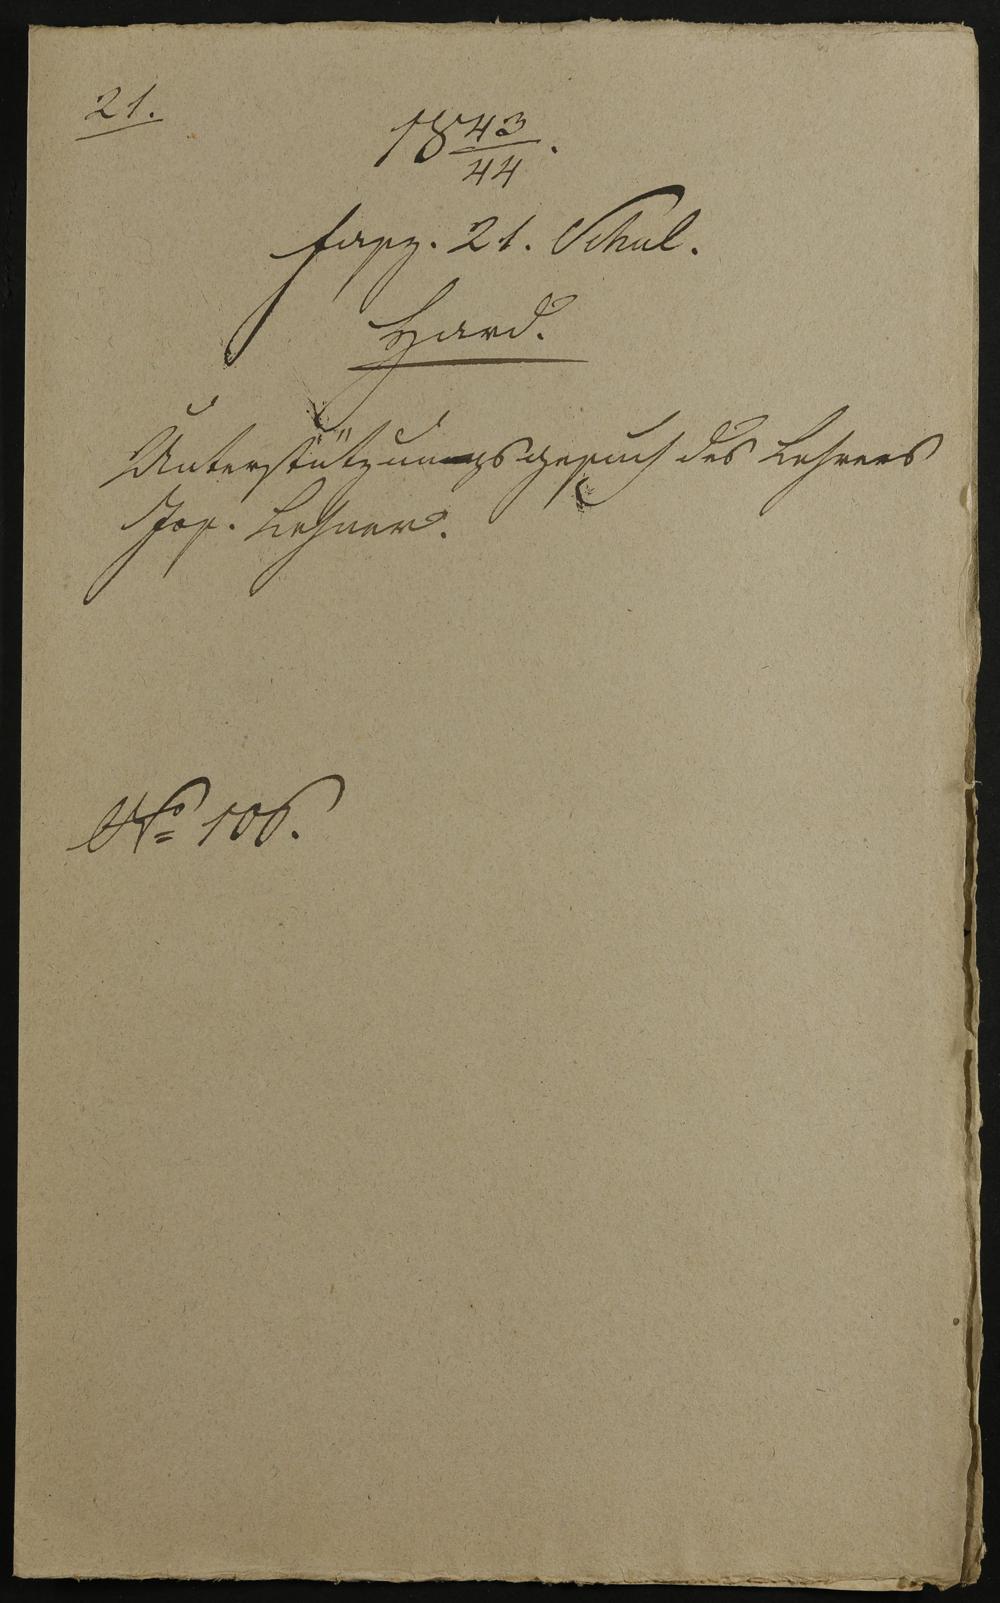 21.
18 43/44.
Fasz. 21. Schul.
Hard.
Unterstützungsgesuch des Lehrers
Jos. Lehner.
No 106.